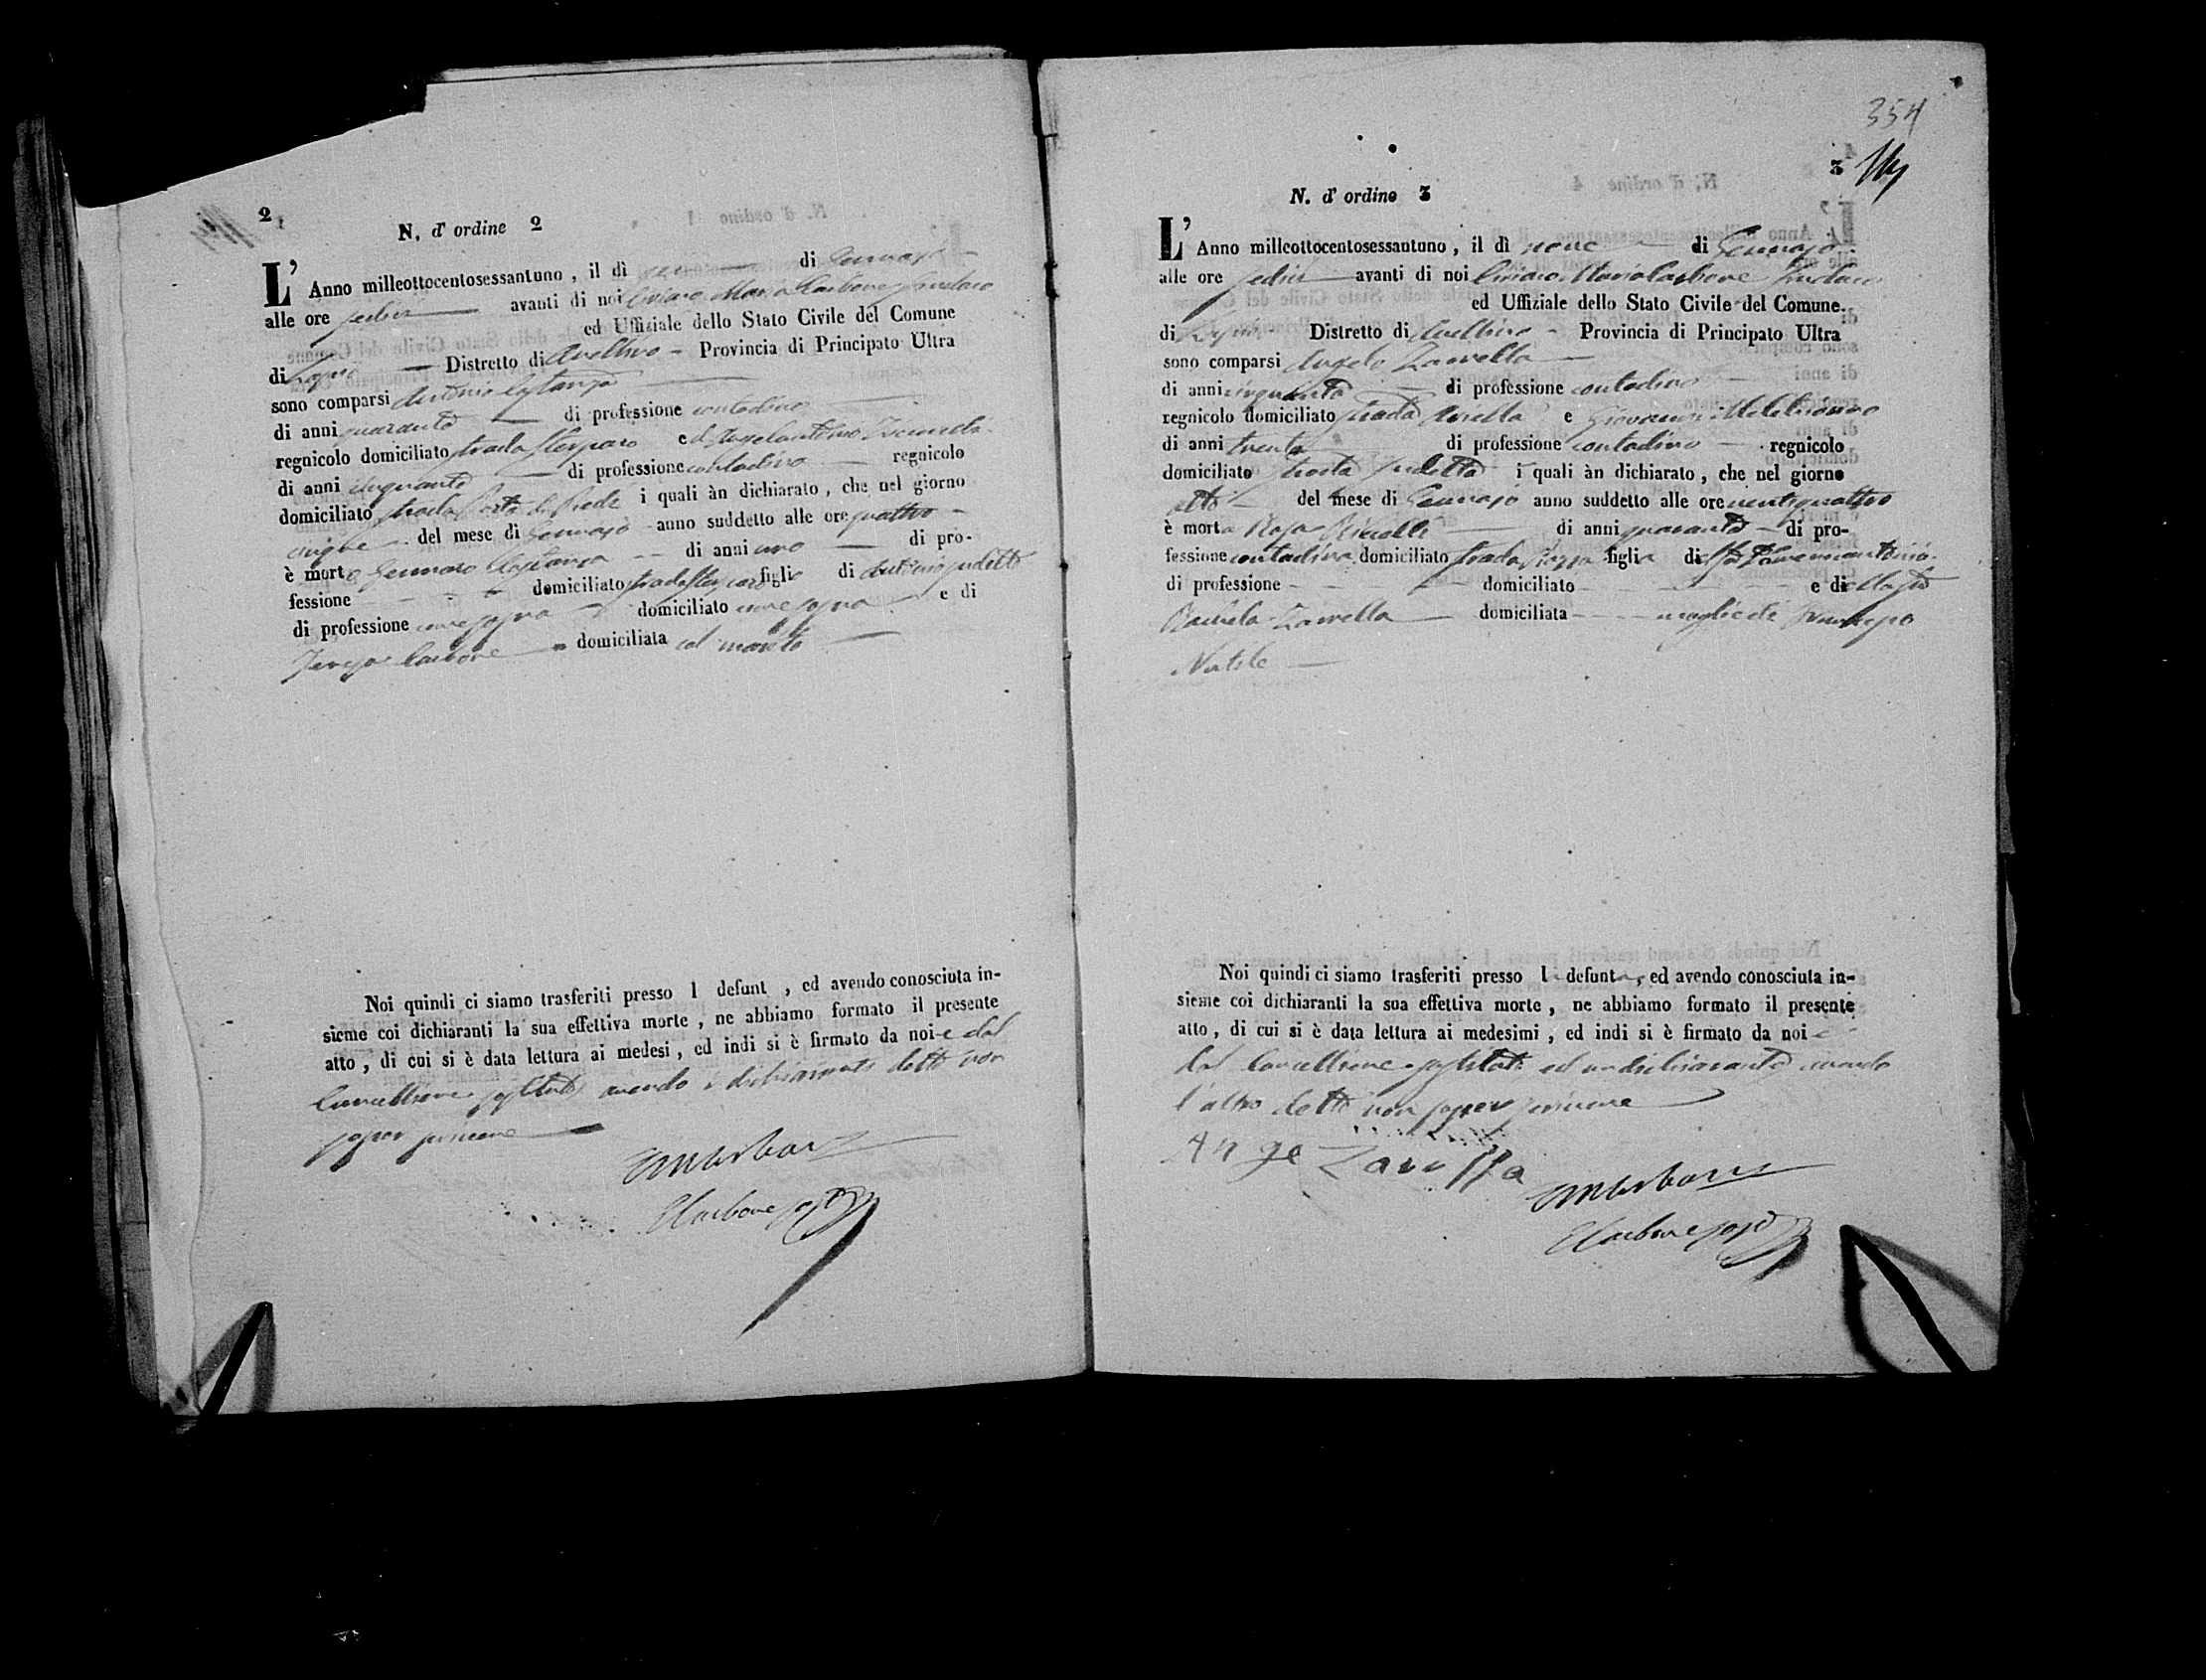 2
N. d' ordine 2
L' Anno milleottocentosessantuno, il dì di Gennajo
alle ore sedici avanti di noi Ciriaco Maria Carbone Sindaco
ed Uffiziale dello Stato Civile del Comune
di Distretto di Avellino - Provincia di Principato Ultra
sono comparsi Antonio Costanza
di anni quaranta di professione contadino
regnicolo domiciliato strada ed Angelantonio
di anni cinquanta di professione contadino regnicolo
domiciliato strada Porta di Piedi i quali àn dichiarato, che nel giorno
cinque del mese di Gennajo anno suddetto alle ore quattro
è morto Gennaro Costanza di anni uno di pro-
fessione domiciliato strada figlio di Antonio sudetto
di professione come sopra domiciliato come sopra e di
Teresa Carbone domiciliata col marito
Noi quindi ci siamo trasferiti presso l defunt , ed avendo conosciuta in-
sieme coi dichiaranti la sua effettiva morte, ne abbiamo formato il presente
atto, di cui si è data lettura ai medesi, ed indi si è firmato da noi e dal
Cancelliere sostituto avendo i dichiaranti detto non
saper scrivere
Carbone sost
354
3
N. d' ordine 3
L' Anno milleottocentosessantuno, il dì nove di Gennajo
alle ore sedici avanti di noi Ciriaco Maria Carbone Sindaco
ed Uffiziale dello Stato Civile del Comune
di Distretto di Avellino - Provincia di Principato Ultra
sono comparsi Angelo Zarrella
di anni cinquanta di professione contadino
regnicolo domiciliato strada e Giovanni
di anni trenta di professione contadino regnicolo
domiciliato strada sudetta i quali àn dichiarato, che nel giorno
otto del mese di Gennajo anno suddetto alle ore ventiquattro
è morta Rosa di anni quaranta di pro-
fessione contadina domiciliato strada figlia di
di professione domiciliato e di
Zarrella domiciliata moglie di
Natale
Noi quindi ci siamo trasferiti presso l defunta, ed avendo conosciuta in-
sieme coi dichiaranti la sua effettiva morte, ne abbiamo formato il presente
atto, di cui si è data lettura ai medesimi, ed indi si è firmato da noi e
dal Cancelliere sostituto ed un dichiarante avendo
l'altro detto non saper scrivere
Ange Zarella
Carbone sost